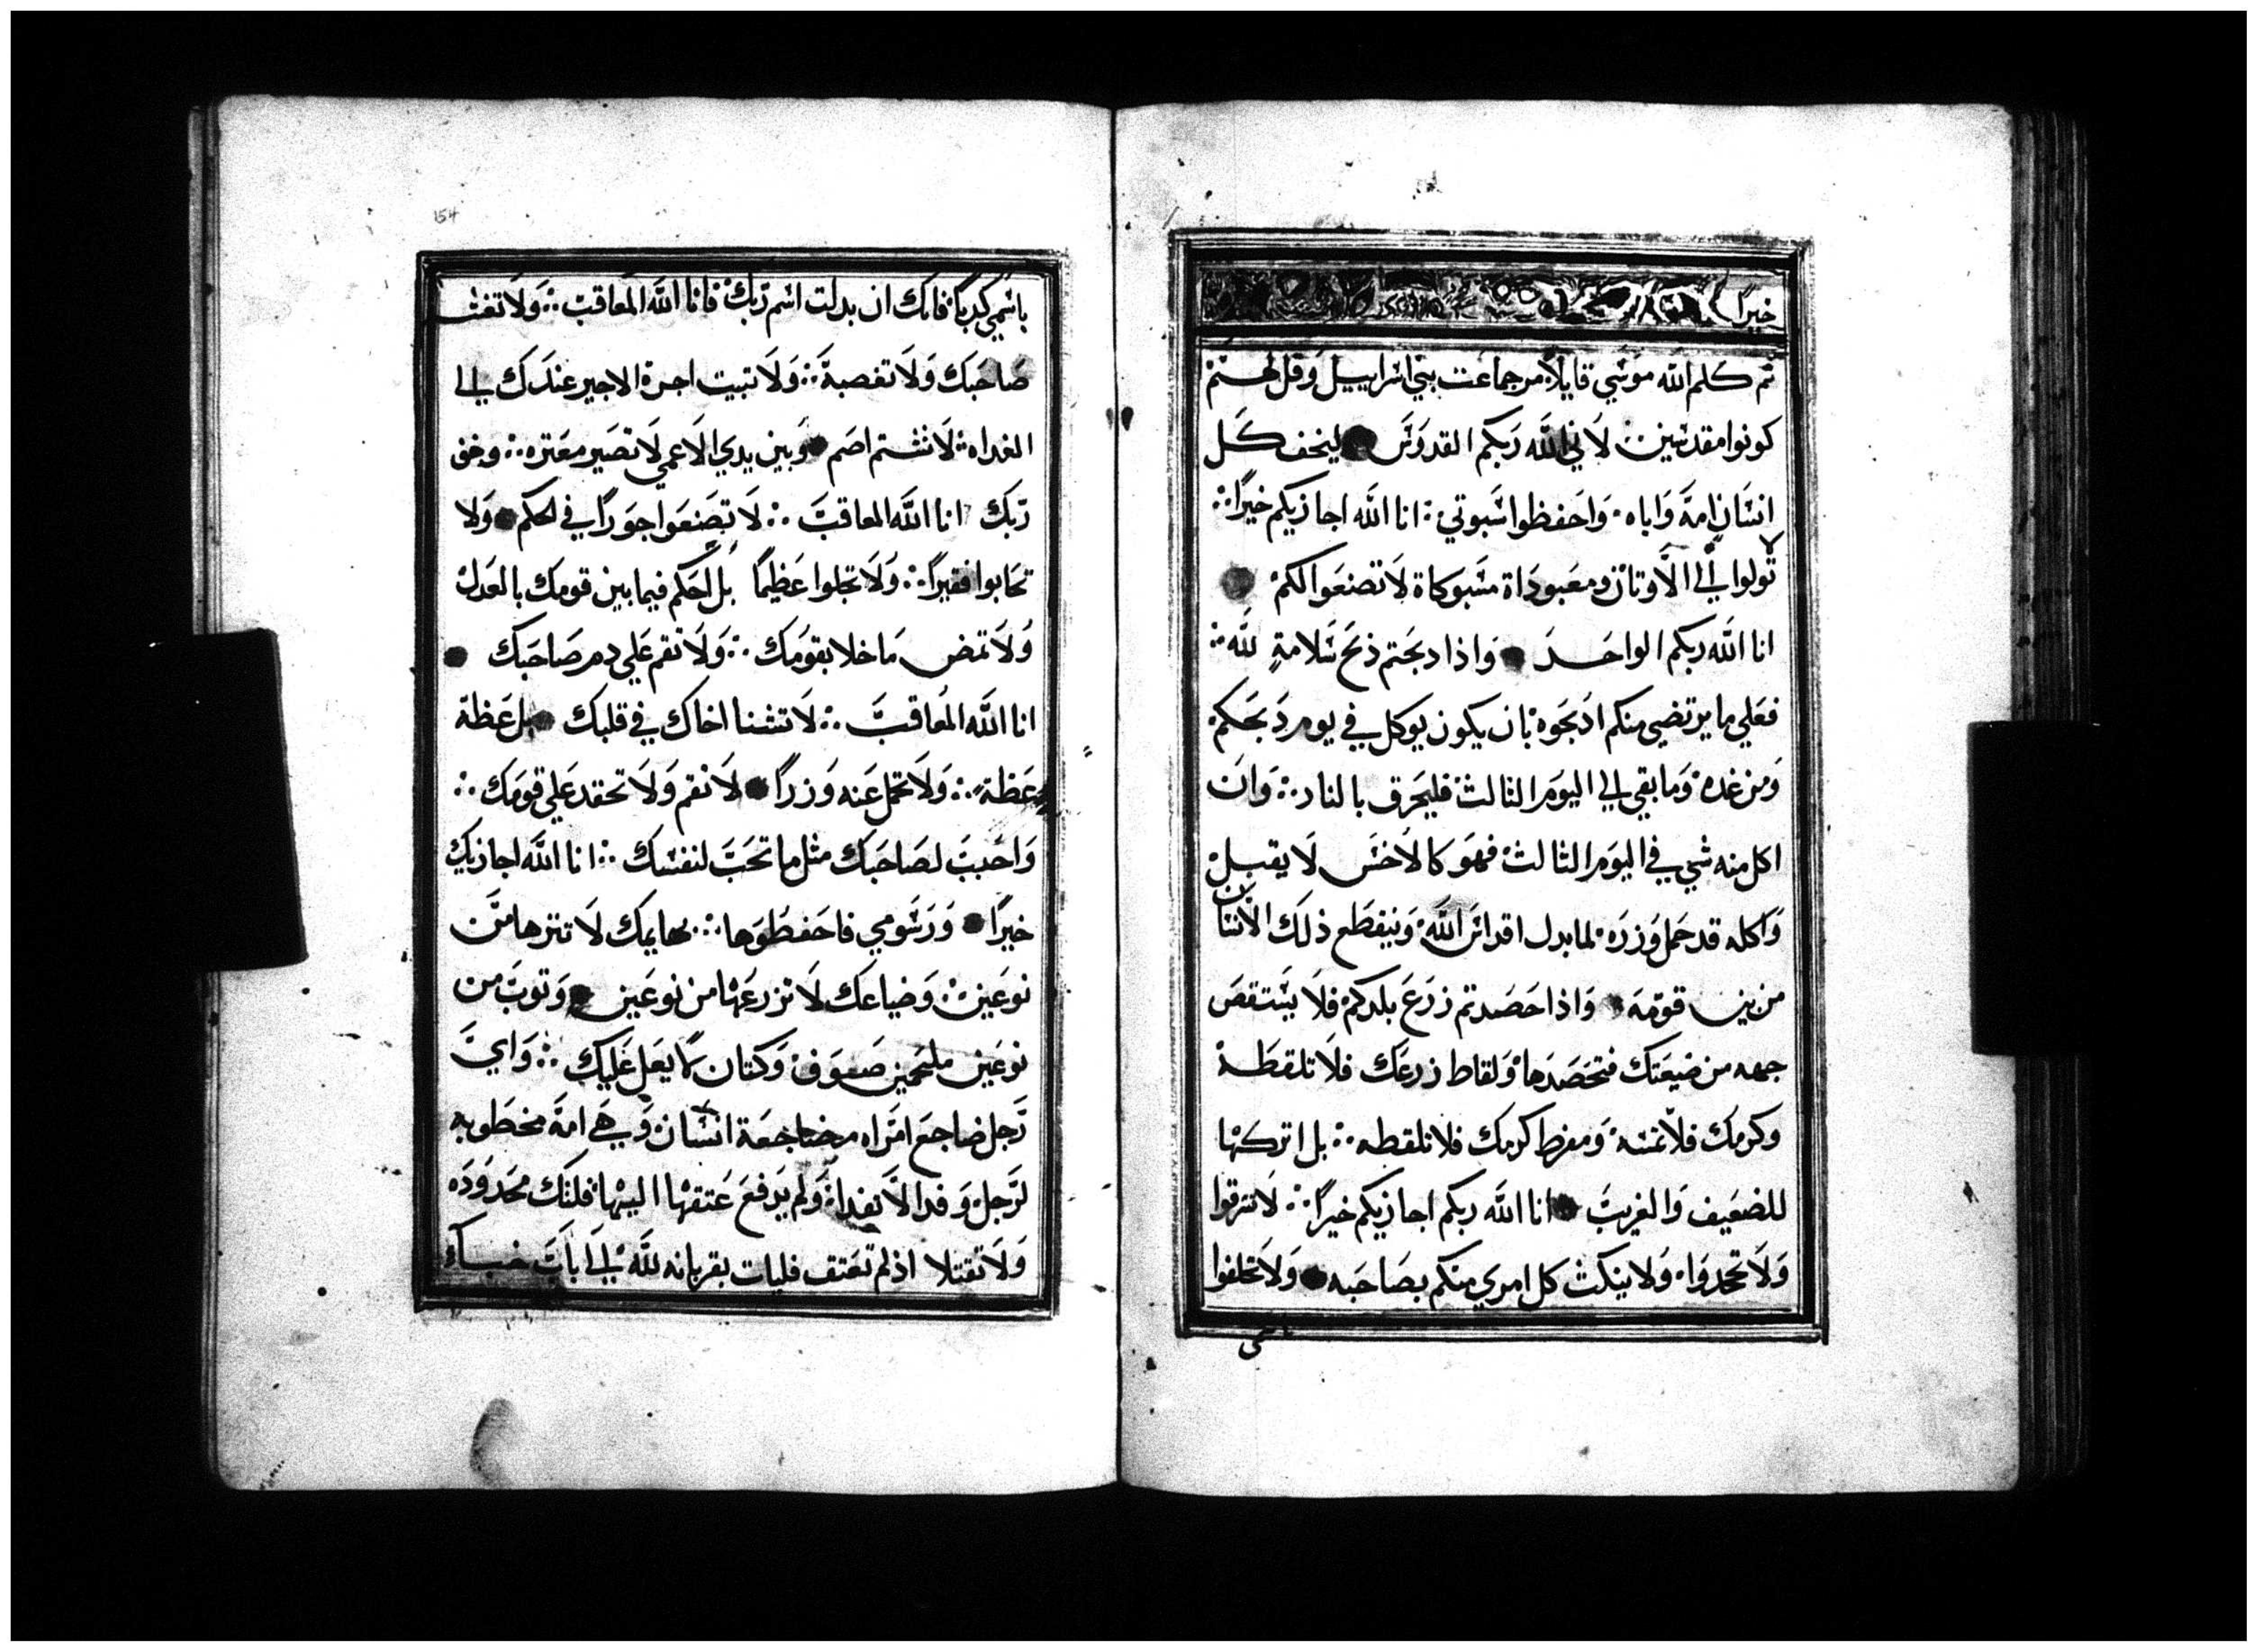 خيرًا
ثم كلم الله موسي قايلاً مر جماعت بني اسراييل وقل لهم
كونوا مقدسين لاني الله ربكم القدوس ليخف كل
انسان امة واباه واحفظوا سبوتي انا الله اجازيكم خيرًا
لا تولوا الي الاوثان ومعبوداة مسبوكاة لا تصنعوا لكم
انا الله ربكم الواحد واذا دبحتم ذبح سلامةٍ لله
فعلي ما يرتضي منكم ادبحوه بان يكون يوكل في يوم دبحكم
ومن غده وما بقي الي اليوم الثالث فليحرق بالنار وان
اكل منه شي في اليوم الثالث فهو كالاخس لا يقبل
واكله قد حمل وزره لما بدل اقداس الله وينقطع ذلك الانسان
من بين قومه واذا حصدتم زرع بلدكم فلا يستقص
جهه من ضيعتك فتحصدها ولقاط زرعك فلا تلقطه
وكرمك فلا تمسه ومفرط كرمك فلا تلقطه بل اتركها
للضعيف والغريب انا الله ربكم اجازيكم خيرًا لا تسرقوا
ولا تجحدوا ولا ينكث كل امري منكم بصاحبه ولا تحلفوا
باسمي
154
باسمي كدبًا فانك ان بدلت اسم ربك فانا الله المعاقب ولا تغش
صاحبك ولا تغصبة ولا تبيت اجرة الاجير عندك الي
الغداه لا تشتم اصم وبين يدي الاعمي لا تصير معتره وخف
ربك انا الله المعاقب لا تصنعوا جورًا في الحكم ولا
تحابوا فقيرًا ولا تجلوا عظيمًا بل احكم فيما بين قومك بالعدل
ولا تمض ماخلا بقومك ولا تقم علي دم صاحبك
انا الله المعاقب لا تشنا اخاك في قلبك بل عظة
عظة ولا تحمل عنه وزرًا لا تنقم ولا تحقد علي قومك
واحبب لصاحبك مثل ما تحب لنفسك انا الله اجازيك
خيرًا ورسومي فاحفظوها بهايمك لا تنزها من
نوعين وضياعك لا تزرعها من نوعين وتوب من
نوعين ملحمين صوف وكتان لا يعل عليك واي
رجل ضاجع امراه مضاجعة انسان وهي امة مخطوبه
لرجل وفدا لا تفداه ولم يدفع عتقها اليها فلتك محدوده
ولا تقتلا اذ لم تعتق فليات بقربانه لله الي باب خباء